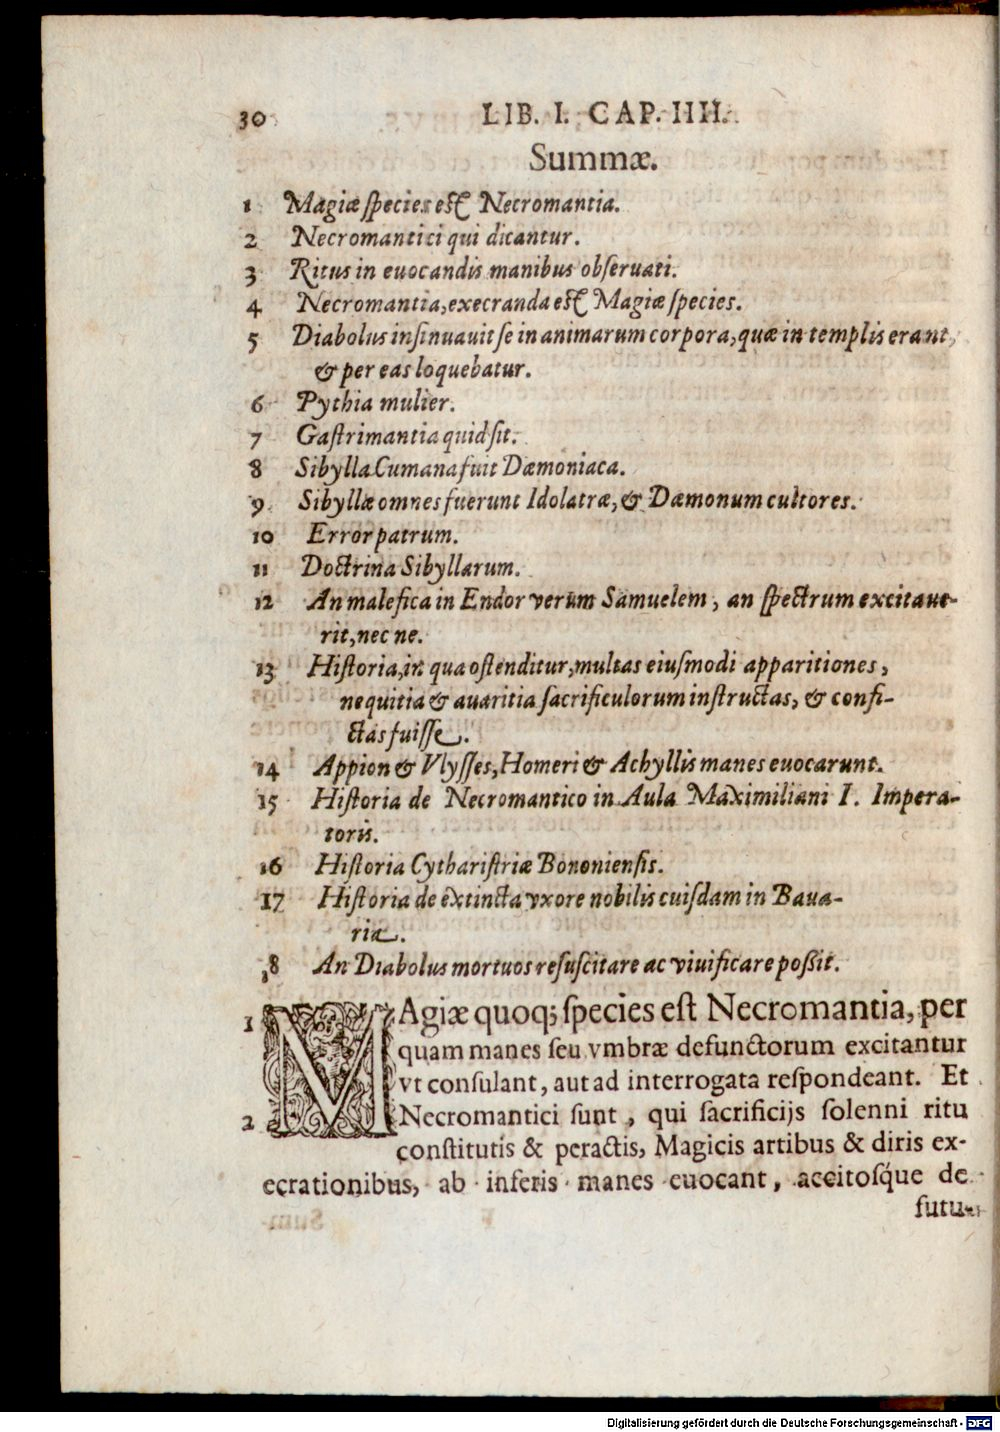 30 LIB. I. CAP. IIII.
Summæ.
1 Magiæ ſpecies eſt Necromantia.
2 Necromantici qui dicantur.
3 Ritus in euocandis manibus obſeruati.
4 Necromantia, execranda eſt Magiæ ſpecies.
5 Diabolus inſinuauit ſe in animarum corpora, quæ in templis erant,
& per eas loquebatur.
6 Pythia mulier.
7 Gaſtrimantia quid ſit.
8 Sibylla Cumana fuit Dæmoniaca.
9 Sibyllæ omnes fuerunt Idolatræ, & Dæmonum cultores.
10 Error patrum.
11 Doctrina Sibyllarum.
12 An malefica in Endor verùm Samuelem, an ſpectrum excitaue-
rit, nec ne.
13 Hiſtoria, in qua oſtenditur, multas eiuſmodi apparitiones,
nequitia & auaritia ſacrificulorum inſtructas, & confi-
ctas fuiſſe.
14 Appion & Vlyſſes, Homeri & Achyllis manes euocarunt.
15 Hiſtoria de Necromantico in Aula Maximiliani I. Impera-
toris.
16 Hiſtoria Cythariſtriæ Bononienſis.
17 Hiſtoria de extincta vxore nobilis cuiſdam in Baua-
ria.
18 An Diabolus mortuos reſuſcitare ac viuificare poßit.
1 MAgiæ quoq; ſpecies est Necromantia, per
quam manes ſeu vmbræ defunctorum excitantur
vt conſulant, aut ad interrogata reſpondeant. Et
2 Necromantici ſunt, qui ſacrificijs ſolenni ritu
conſtitutis & peractis, Magicis artibus & diris ex-
ecrationibus, ab inferis manes euocant, accitoſq́ue de
futu-
Digitalisierung gefördert durch die Deutsche Forschungsgemeinschaft - DFG